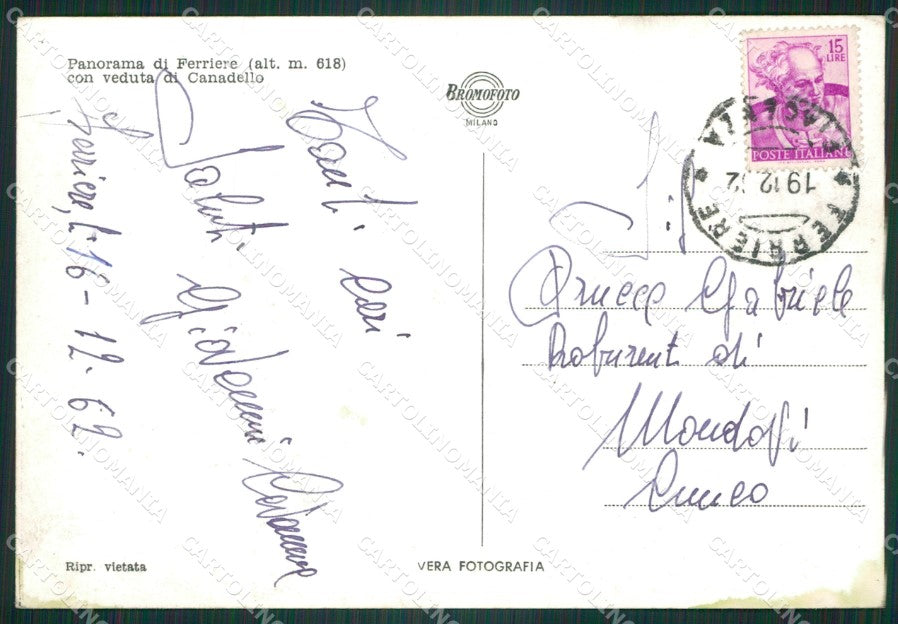 Panorama di Ferriere (alt. m. 618)
con veduta di Canadello
BROMOFOTO
MILANO
15
LIRE
POSTE ITALIANE
FERRIERE
PIACENZA
19.12.
Ferriere, li 16-12-62.
Tanti cari
Saluti Giovanni
Gabriele
Roburent di
Mondovi
Cuneo
Ripr. vietata
VERA FOTOGRAFIA
CARTOLINOMANIA